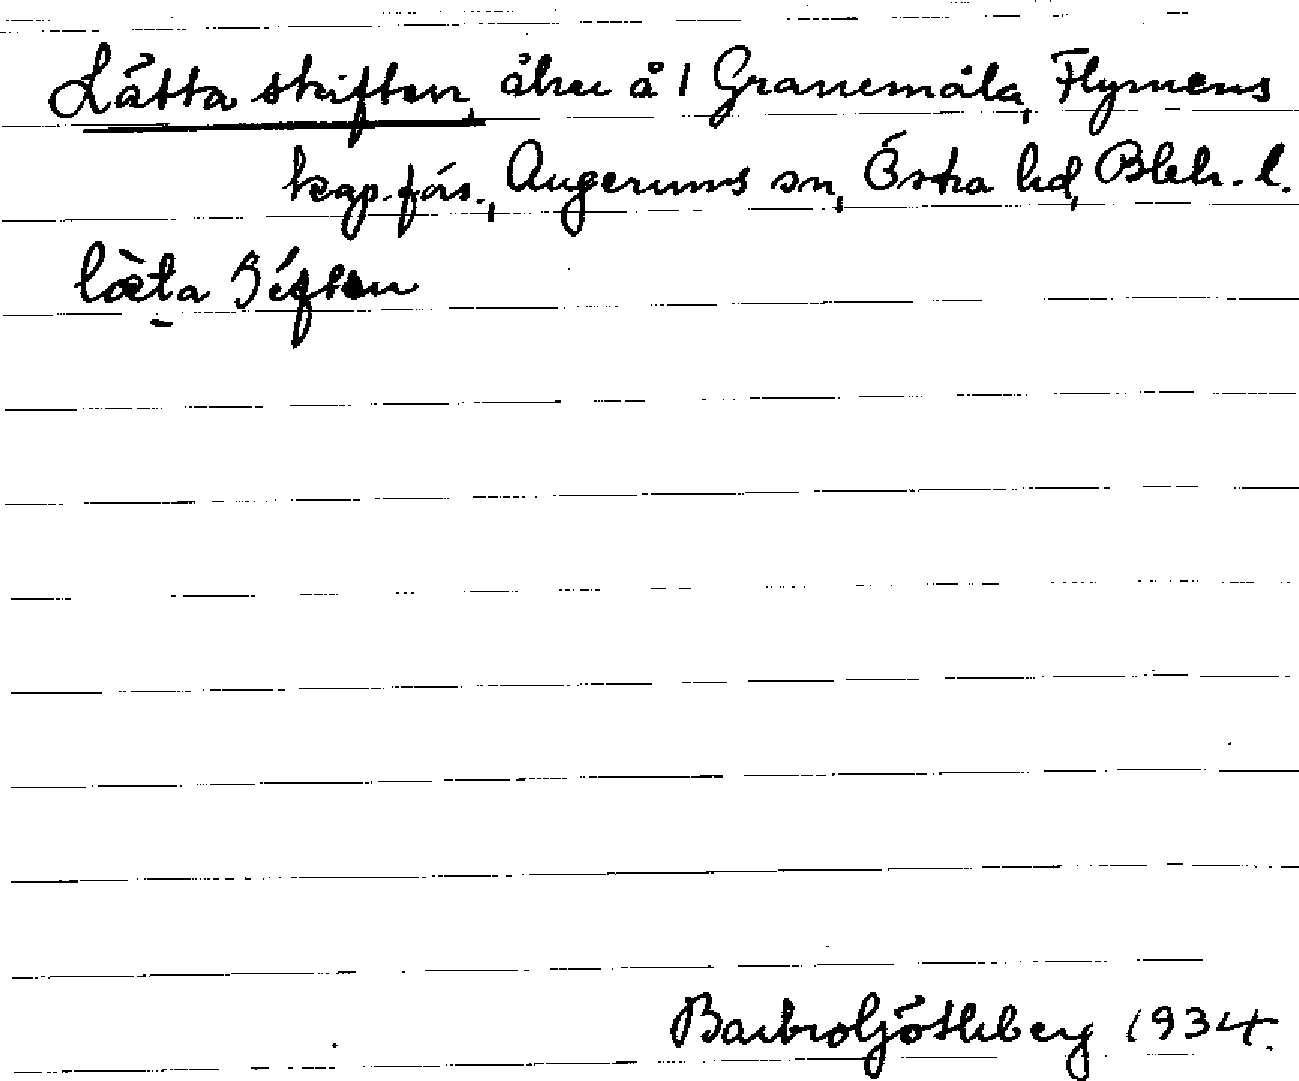 Lätta skiften, åker å 1 Granemåla, Flymens
kap.förs., Augerums sn, Östra hd, Blek. l.
Barbro Götheberg 1934.